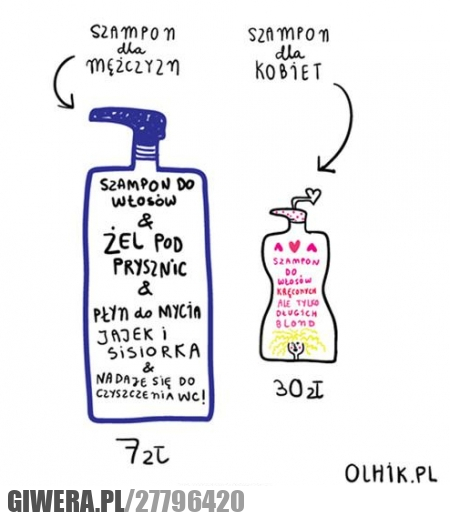 SZAMPON
dla
MĘŻCZYZN
SZAMPON DO
WŁOSÓW
&
ŻEL POD
PRYSZNIC
&
PŁYN do MYCIA
JAJEK i
SISIORKA
&
NADAJE SIĘ DO
CZYSZCZENIA WC!
7zł
SZAMPON
dla
KOBIET
SZAMPON
DO
WŁOSÓW
KRĘCONYCH
ALE TYLKO
DŁUGICH
BLOND
30zł
OLHIK.PL
GIWERA.PL/27796420